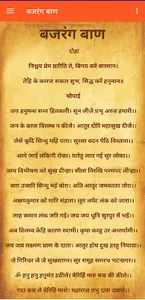 बजरंग बाण
बजरंग बाण
दोहा
निश्चय प्रेम प्रतीति ते, विनय करैं सनमान।
तेहि के कारज सकल शुभ, सिद्ध करैं हनुमान॥
चौपाई
जय हनुमन्त सन्त हितकारी। सुन लीजै प्रभु अरज हमारी॥
जन के काज विलम्ब न कीजै। आतुर दौरि महासुख दीजै॥
जैसे कूदि सिन्धु महि पारा। सुरसा बदन पैठि विस्तारा॥
आगे जाई लंकिनी रोका। मारेहु लात गई सुर लोका॥
जाय विभीषण को सुख दीन्हा। सीता निरखि परमपद लीन्हा॥
बाग उजारि सिन्धु महँ बोरा। अति आतुर जमकातर तोरा॥
अक्षयकुमार को मारि संहारा। लूम लपेट लंक को जारा॥
लाह समान लंक जरि गई। जय जय धुनि सुरपुर में भई॥
अब विलम्ब केहि कारण स्वामी। कृपा करहु उर अन्तर्यामी॥
जय जय लक्ष्मण प्राण के दाता। आतुर होय दुख हरहु निपाता॥
जै गिरिधर जै जै सुखसागर। सुर समूह समरथ भटनागर॥
ॐ हनु हनु हनुमंत हठीले। बैरिहिं मारु बज्र की कीले॥
गदा बज्र लै बैरिहिं मारो। महाराज प्रभु दास उबारो॥